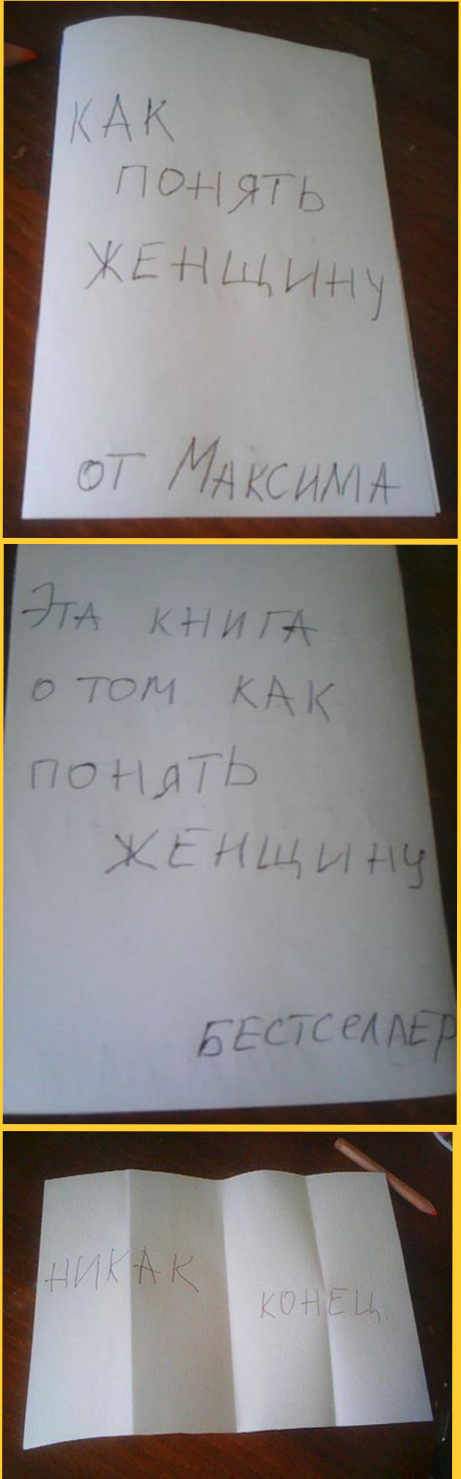 КАК
ПОНЯТЬ
ЖЕНЩИНУ
ОТ МАКСИМА
ЭТА КНИГА
О ТОМ КАК
ПОНЯТЬ
ЖЕНЩИНУ
БЕСТСЕЛЛЕР
НИКАК
КОНЕЦ